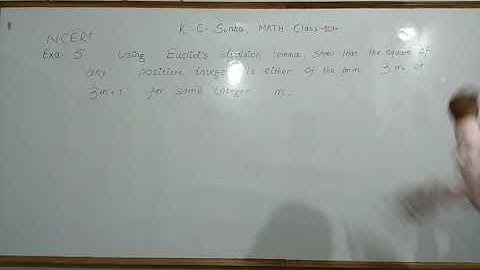 K. C. Sinha, MATH Class-10th
NCERT
Exa. 5. Using Euclid's division lemma, show that the square of
any positive integer is either of the form 3m or
3m+1 for some integer m.